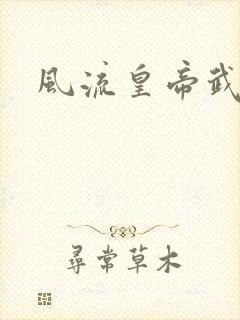 風流皇帝武
尋常草木